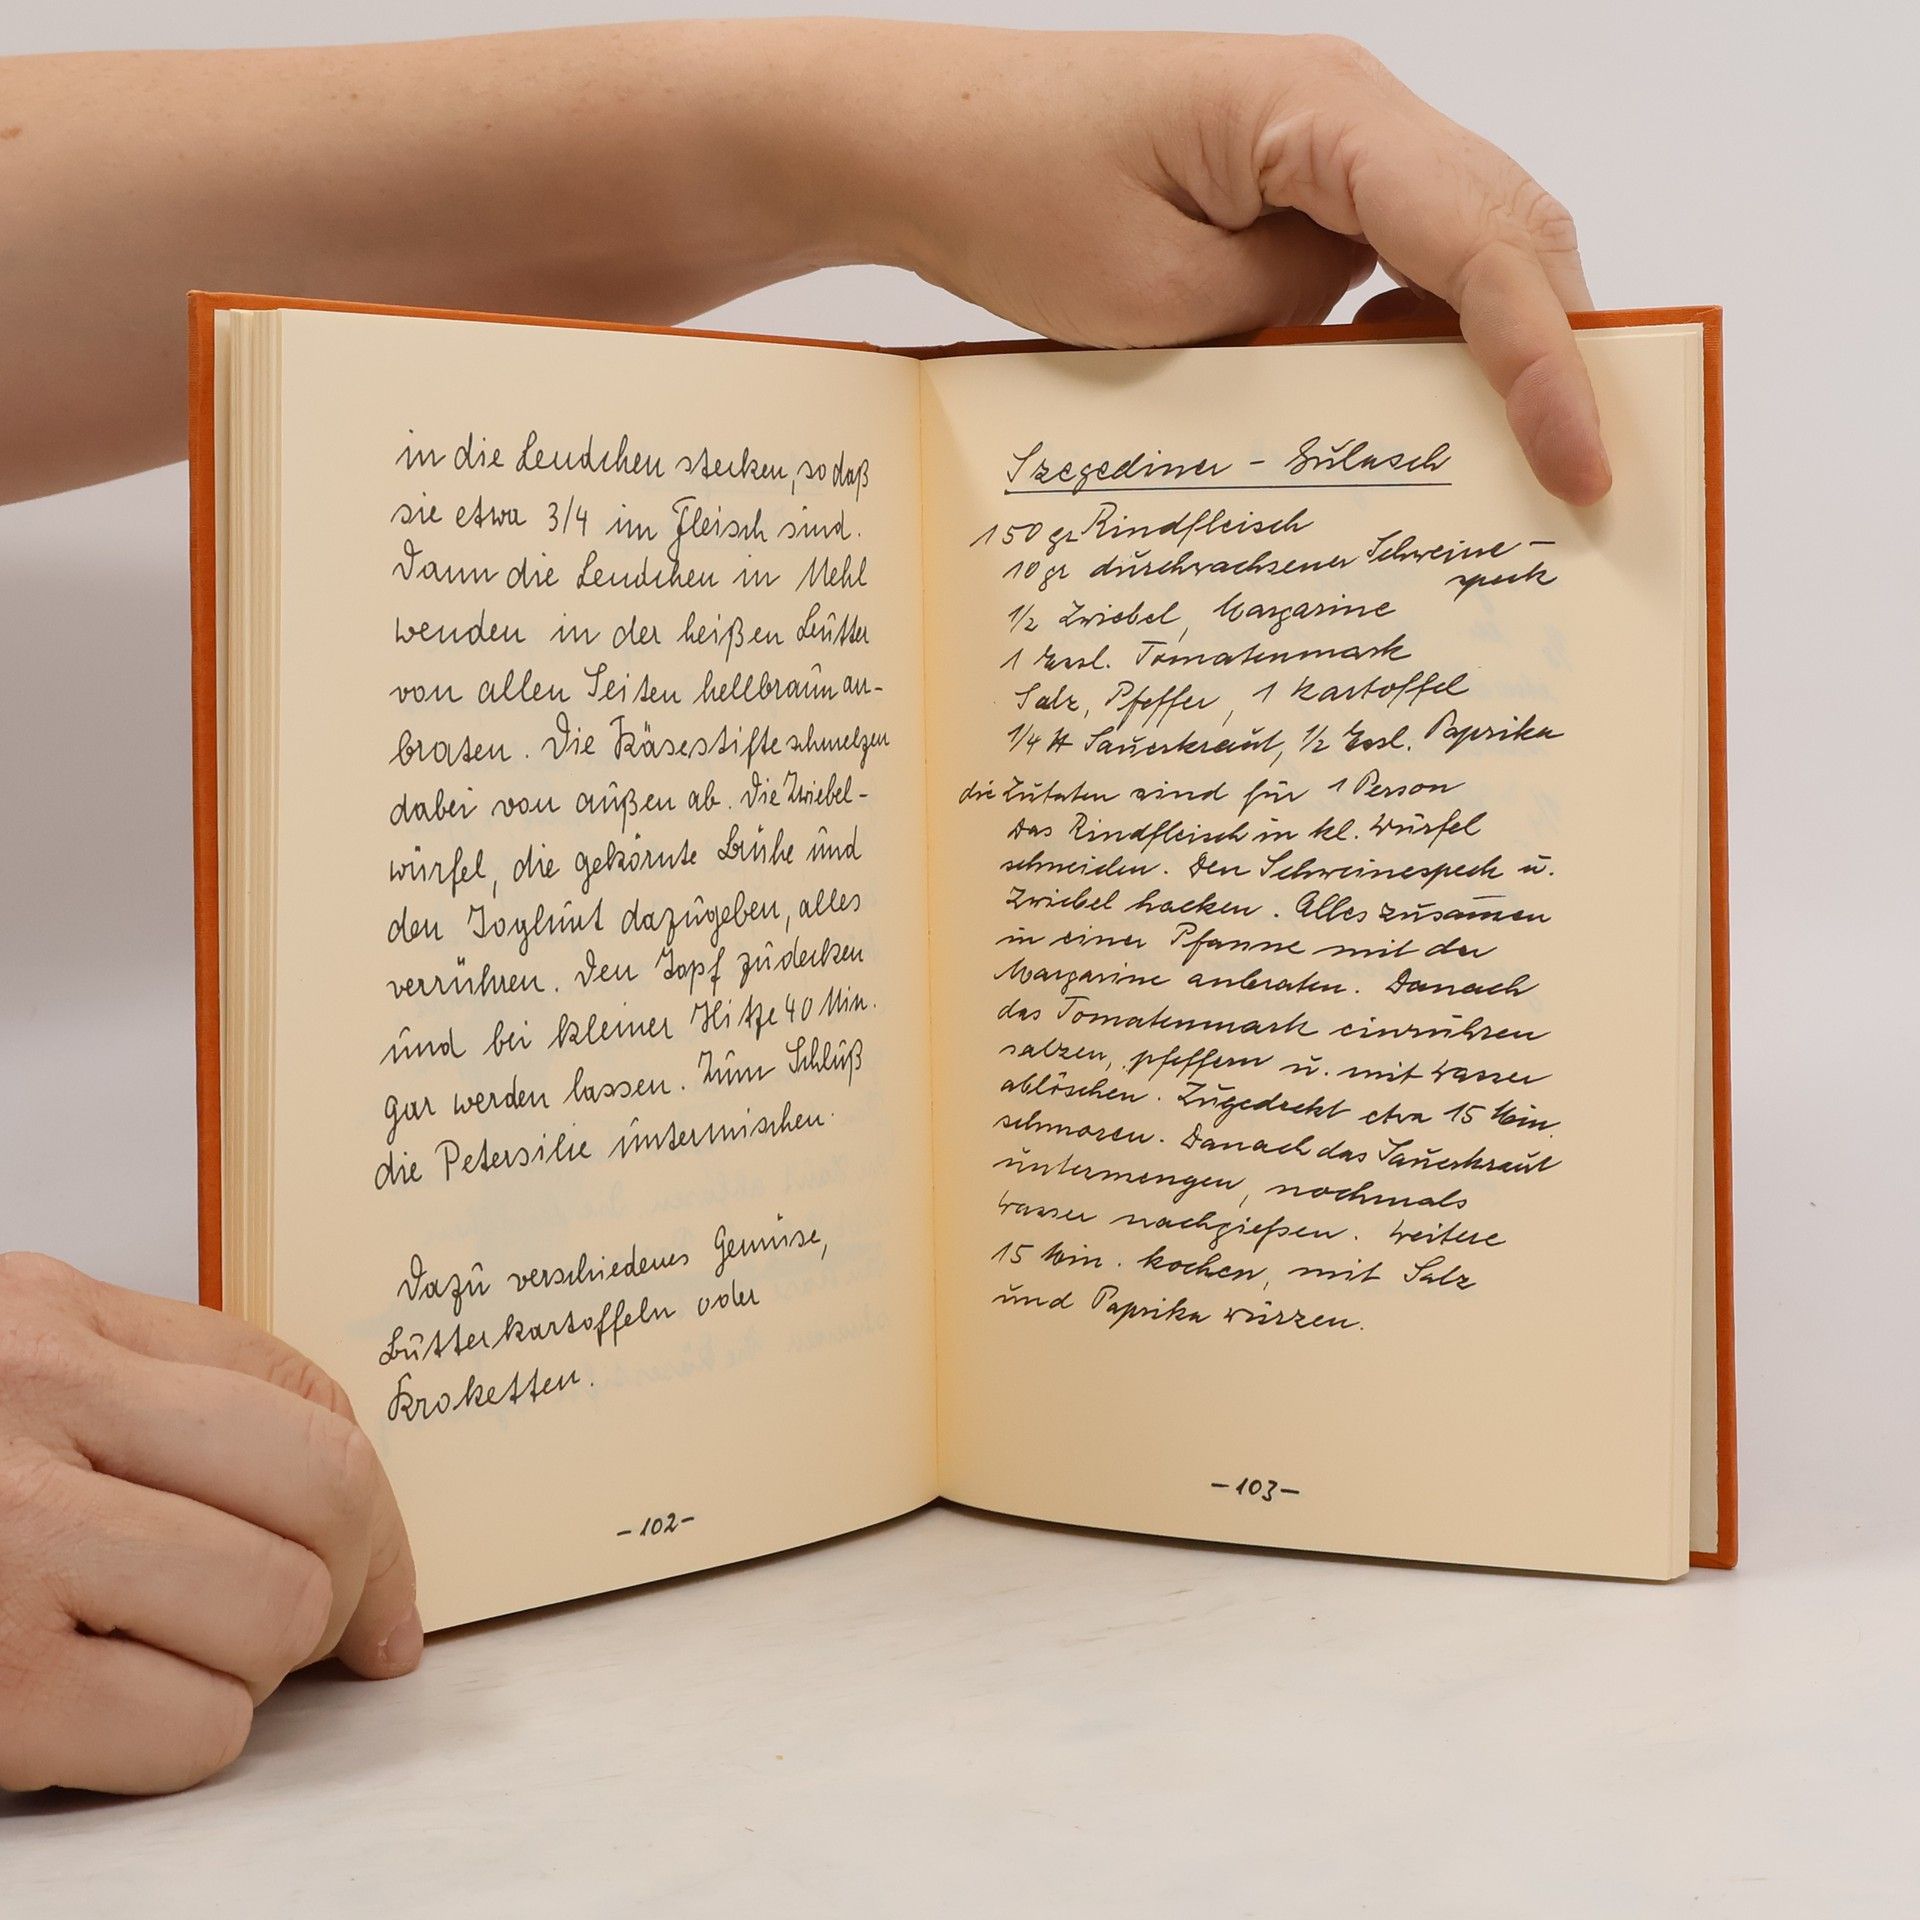 in die Lendchen stecken, so daß
sie etwa 3/4 im Fleisch sind.
Dann die Lendchen in Mehl
wenden in der heißen Butter
von allen Seiten hellbraun an-
braten. Die Käsestifte schmelzen
dabei von außen ab. Die Zwiebel-
würfel, die gekörnte Brühe und
den Joghurt dazugeben, alles
verrühren. Den Topf zudecken
und bei kleiner Hitze 40 Min.
gar werden lassen. Zum Schluß
die Petersilie untermischen.
Dazu verschiedenes Gemüse,
Butterkartoffeln oder
Kroketten.
-102-
Szegediner - Gulasch
150 gr Rindfleisch
10 gr durchwachsener Schweine-
speck
1/2 Zwiebel, Margarine
1 Essl. Tomatenmark
Salz, Pfeffer, 1 Kartoffel
1/4 ℔ Sauerkraut, 1/2 Essl. Paprika
die Zutaten sind für 1 Person
Das Rindfleisch in kl. Würfel
schneiden. Den Schweinespeck u.
Zwiebel hacken. Alles zusam̅en
in einer Pfanne mit der
Margarine anbraten. Danach
das Tomatenmark einrühren
salzen, pfeffern u. mit Wasser
ablöschen. Zugedeckt etwa 15 Min.
schmoren. Danach das Sauerkraut
untermengen, nochmals
Wasser nachgießen. Weitere
15 Min. kochen, mit Salz
und Paprika würzen.
-103-